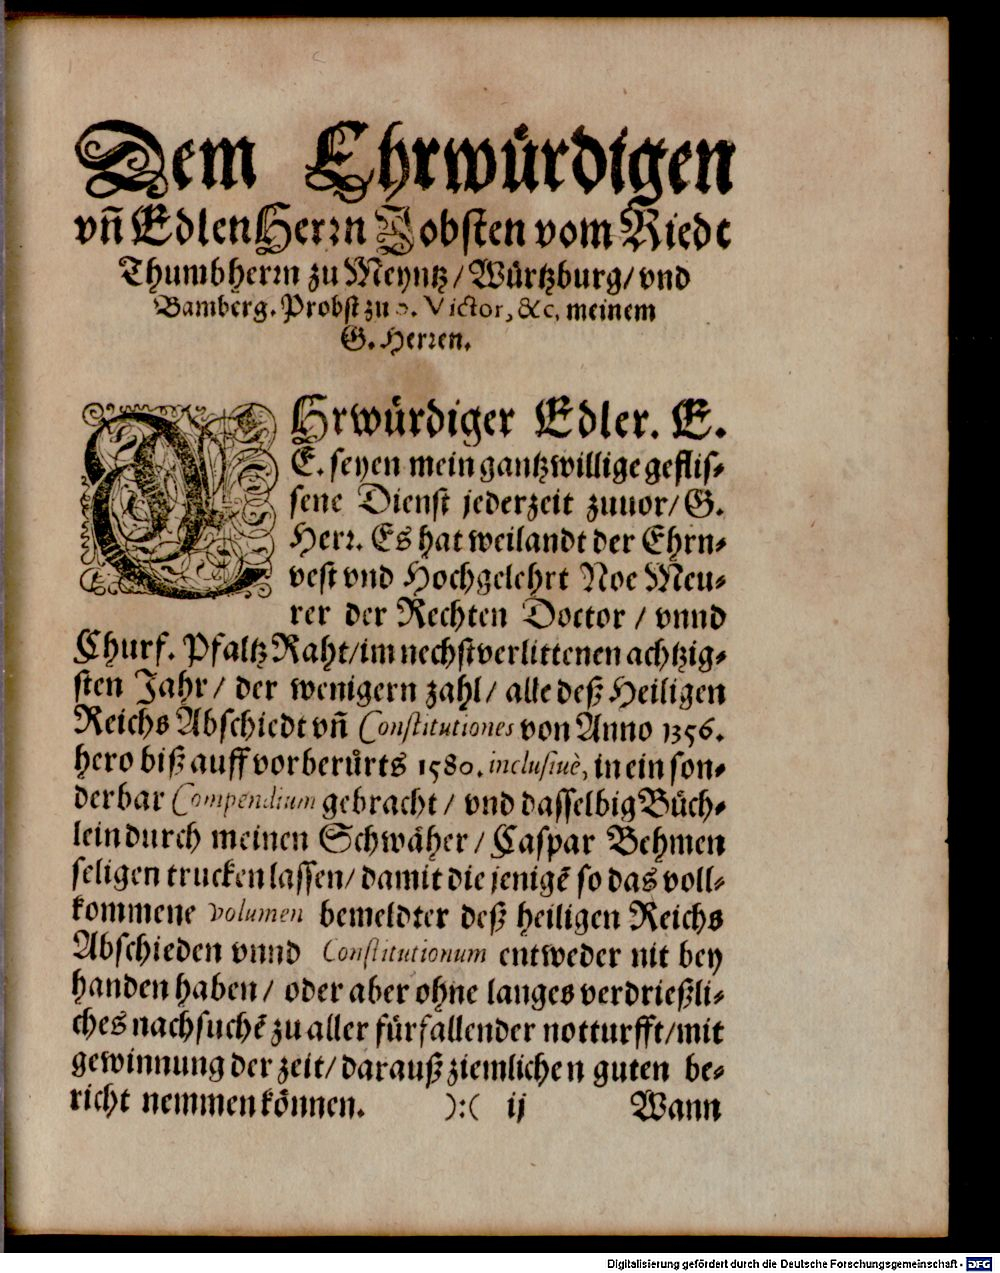 Dem Ehrwürdigen
vñ Edlen Herꝛn Jobsten vom Riedt
Thumbherꝛn zu Meyntz/ Würtzburg/ vnd
Bamberg. Probst zu S. Victor, &c, meinem
G. Herꝛen.
EHrwürdiger Edler. E.
E. seyen mein gantzwillige geflis-
sene Dienst jederzeit zuuor/ G.
Herꝛ. Es hat weilandt der Ehrn-
vest vnd Hochgelehrt Noe Meu-
rer der Rechten Doctor / vnnd
Churf. Pfaltz Raht/ im nechstverlittenen achtzig-
sten Jahr/ der wenigern zahl/ alle deß Heiligen
Reichs Abschiedt vñ Constitutiones von Anno 1356.
hero biß auff vorberürts 1580. inclusiuè, in ein son-
derbar Compendium gebracht/ vnd dasselbig Büch-
lein durch meinen Schwäher/ Caspar Behmen
seligen trucken lassen/ damit die jenigẽ so das voll-
kommene volumen bemeldter deß heiligen Reichs
Abschieden vnnd Constitutionum entweder nit bey
handen haben/ oder aber ohne langes verdrießli-
ches nachsuchẽ zu aller fürfallender notturfft/ mit
gewinnung der zeit/ darauß ziemlichen guten be-
richt nemmen können. ):( ij Wann
Digitalisierung gefördert durch die Deutsche Forschungsgemeinschaft - DFG